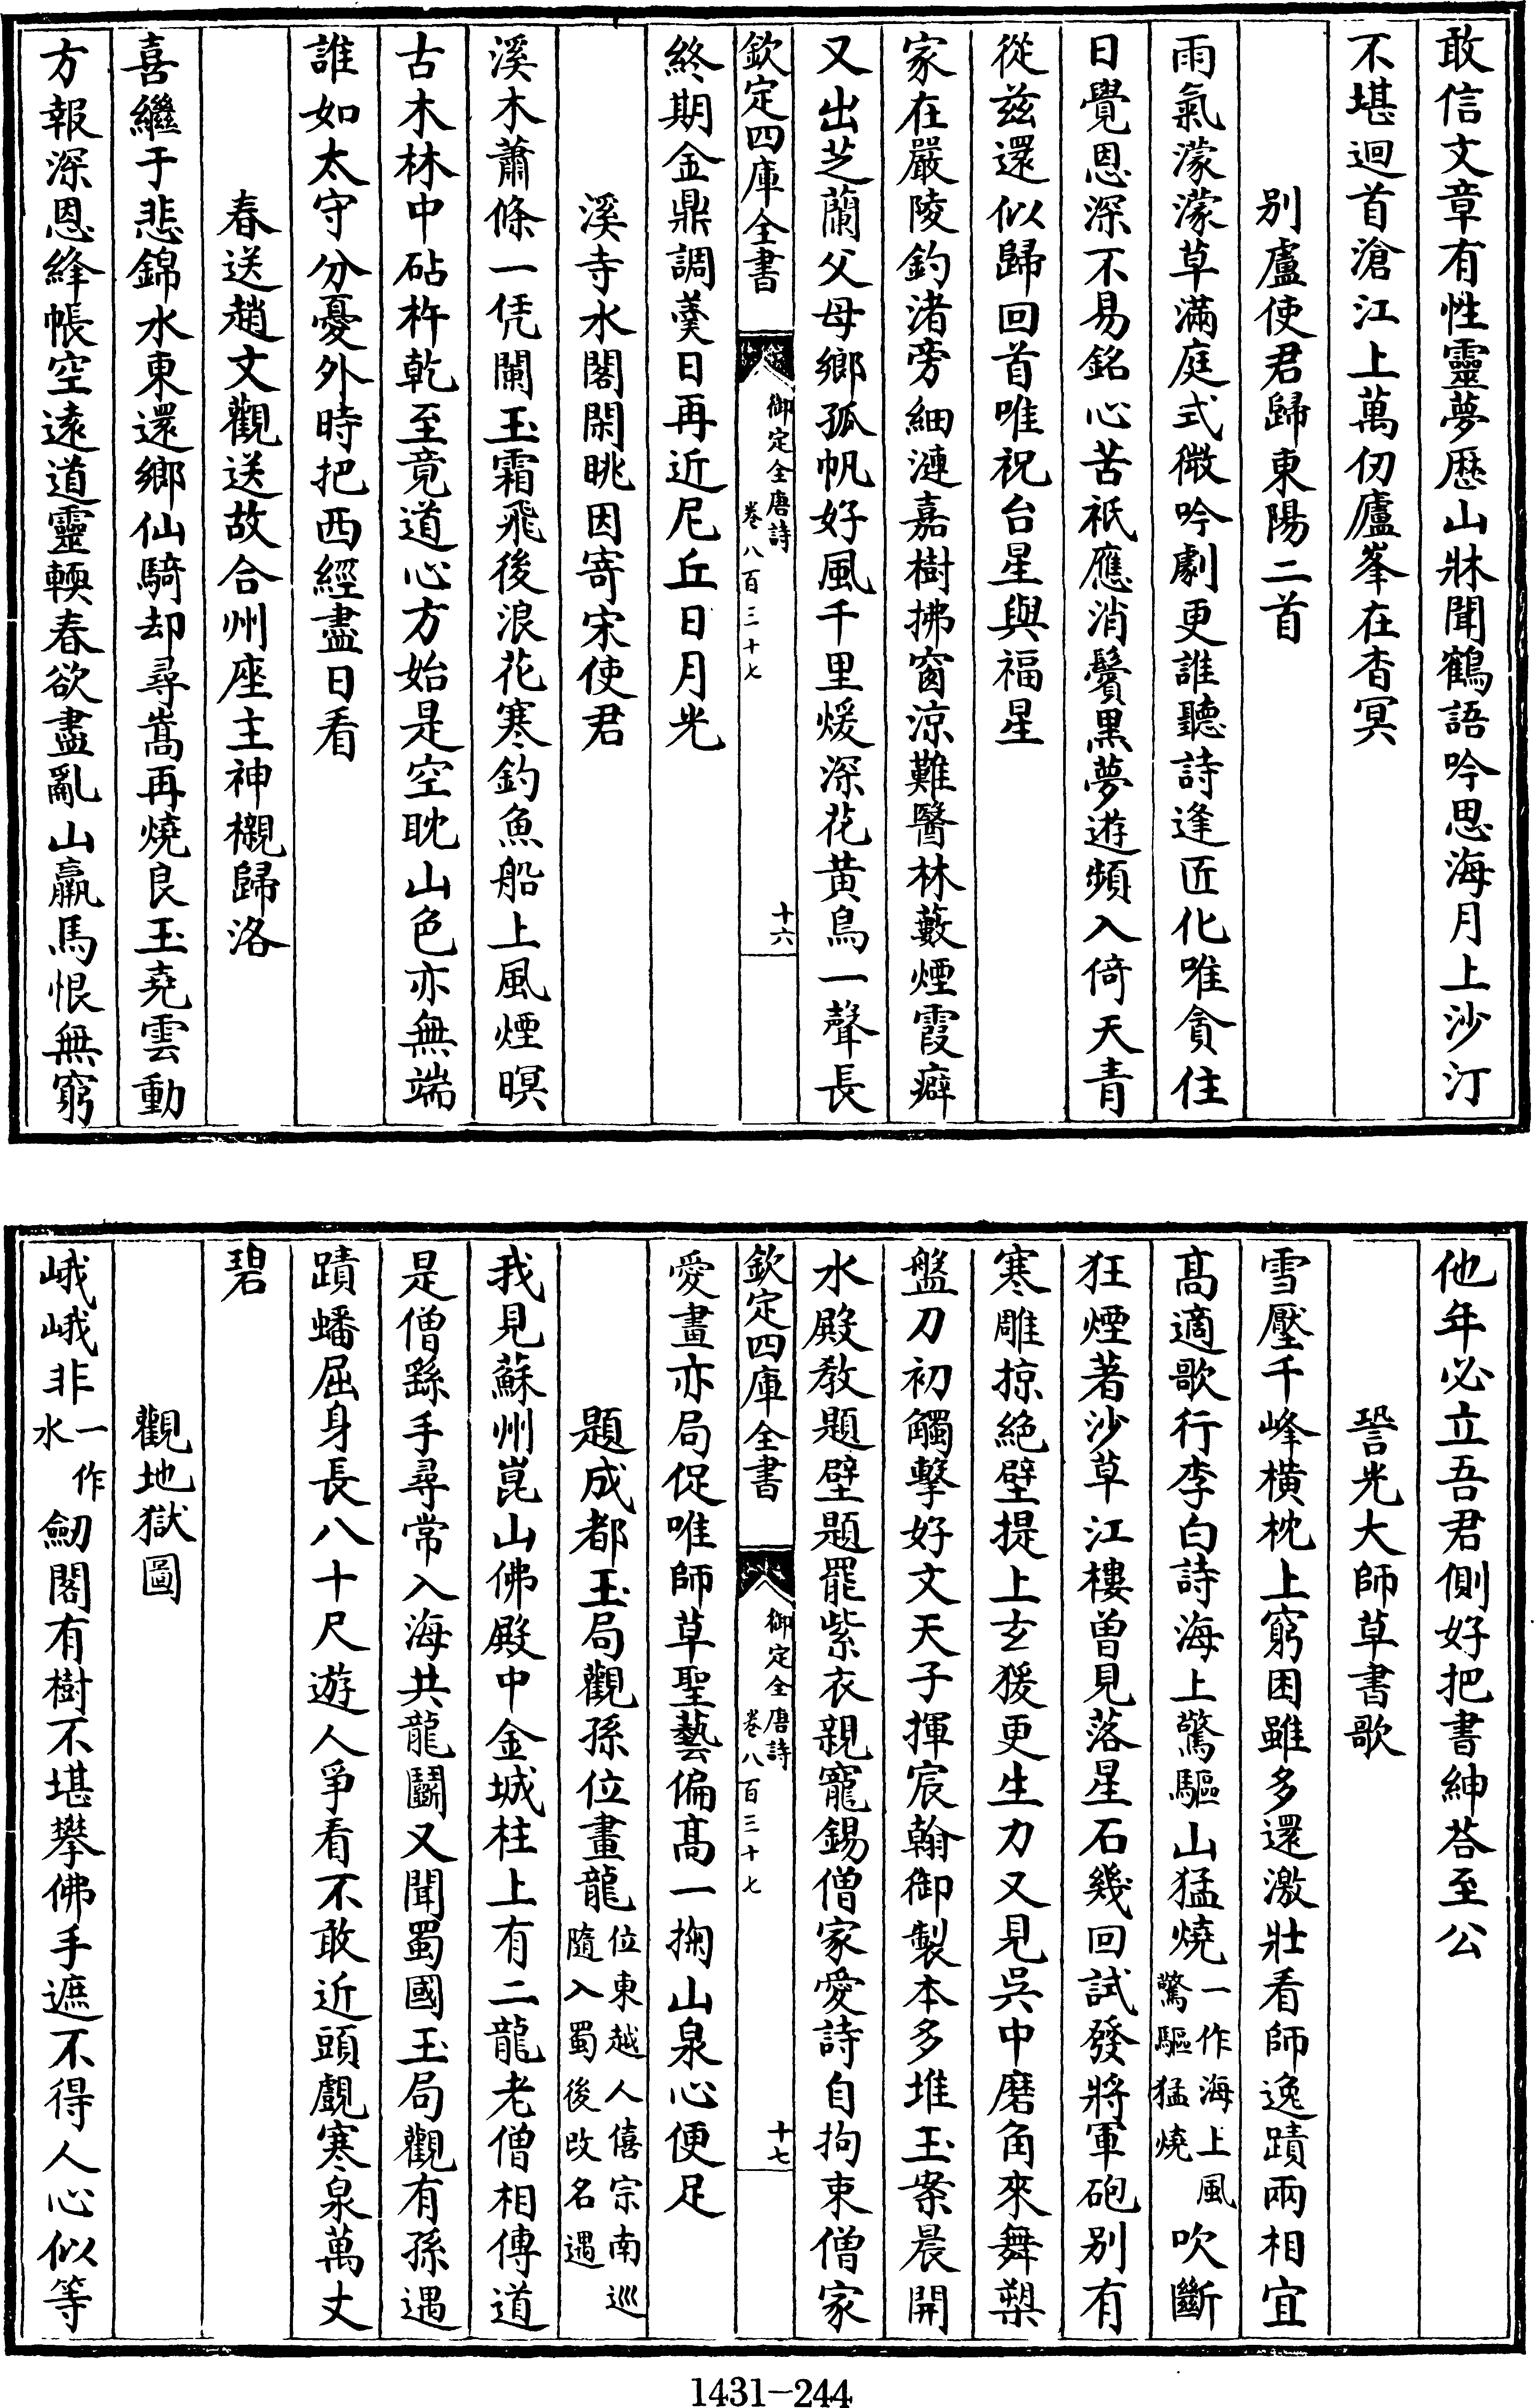 敢信文章有性靈夢歷山牀聞鶴語吟思海月上沙汀
不堪迴首滄江上萬仞廬峯在杳冥
别盧使君歸東陽二首
雨氣濛濛草滿庭式微吟劇更誰聽詩逢匠化唯貪住
日覺恩深不易銘心苦祇應消鬢黒夢遊頻入倚天青
從兹還似歸回首唯祝台星與福星
家在嚴陵釣渚旁細漣嘉樹拂窗涼難醫林藪煙霞癖
又出芝蘭父母鄉孤帆好風千里煖深花黄鳥一聲長
欽定四庫全書 御定全唐詩 卷八百三十七 十六
終期金鼎調羹日再近尼丘日月光
溪寺水閣閑眺因寄宋使君
溪木蕭條一凭闌玉霜飛後浪花寒釣魚船上風煙暝
古木林中砧杵乾至竟道心方始是空耽山色亦無端
誰如太守分憂外時把西經盡日看
春送趙文觀送故合州座主神櫬歸洛
喜繼于悲錦水東還鄉仙騎却尋嵩再燒良玉堯雲動
方報深恩絳帳空遠道靈輭春欲盡亂山羸馬恨無窮
他年必立吾君側好把書紳荅至公
䛒光大師草書歌
雪壓千峰橫枕上窮困雖多還激壯看師逸蹟兩相宜
高適歌行李白詩海上驚驅山猛燒一作海上風驚驅猛燒吹斷
狂煙著沙草江樓曾見落星石幾回試發將軍砲别有
寒雕掠絶壁提上玄猨更生力又見吳中磨角來舞槊
盤刀初觸擊好文天子揮宸翰御製本多堆玉案晨開
水殿教題壁題罷紫衣親寵錫僧家愛詩自拘束僧家
欽定四庫全書 御定全唐詩 卷八百三十七 十七
愛畫亦局促唯師草聖藝偏高一掬山泉心便足
題成都玉局觀孫位畫龍位東越人僖宗南巡隨入蜀後改名遇
我見蘇州崑山佛殿中金城柱上有二龍老僧相傳道
是僧繇手尋常入海共龍鬭又聞蜀國玉局觀有孫遇
蹟蟠屈身長八十尺遊人爭看不敢近頭覷寒泉萬丈
碧
觀地獄圖
峨峨非一作水劒閣有樹不堪攀佛手遮不得人心似等
1431—244